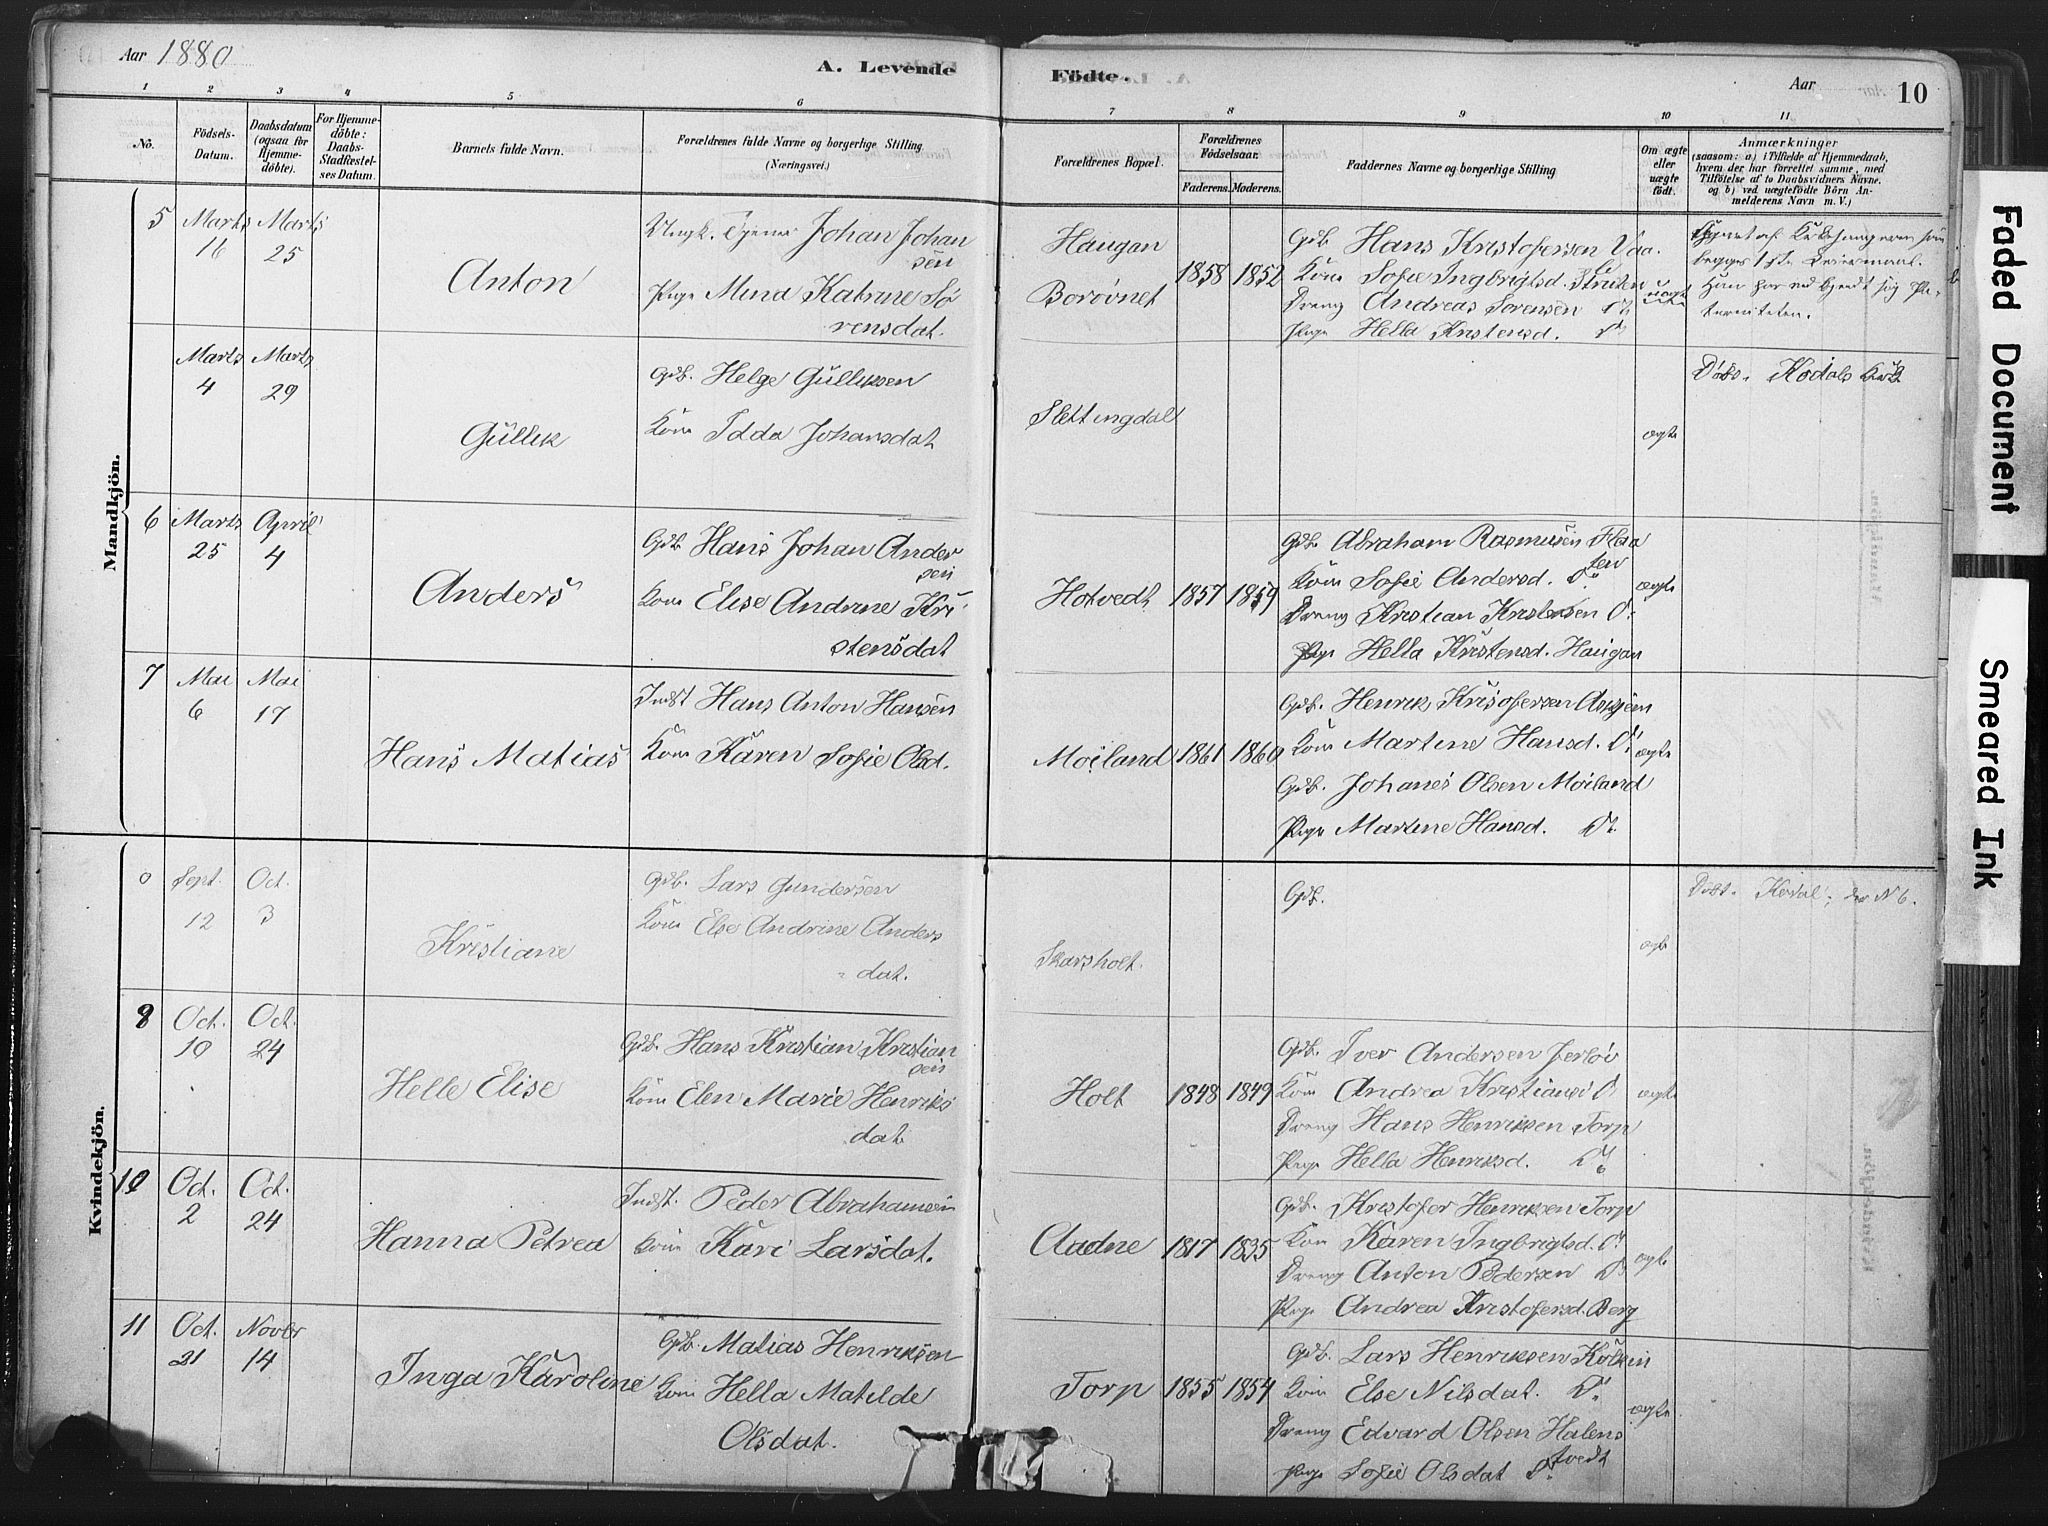 Aar 1880
A. Levende Födte.
Aar
10
1 2 3 4 5 6 7 8 9 10 11
No.
Födsels-Datum.
Daabsdatum (ogsaa for Hjemme-döbte).
For Hjemme-döbte: Daabs-Stadfæstel-ses Datum.
Barnets fulde Navn.
Forældrenes fulde Navne og borgerlige Stilling (Næringsvei.)
Forældrenes Bopæl.
Forældrenes Födselsaar.
Faderens. Moderens.
Faddernes Navne og borgerlige Stilling
Om ægte eller uægte födt.
Anmærkninger
(saasom: a) i Tilfælde af Hjemmedaab,
hvem der har forrettet samme, med
Tilföielse af to Daabsvidners Navne.
og b) ved uægtefödte Börn An-
melderens Navn m. V.)
Mandkjön.
5
Marts 16
Marts 25
Anton
Ungk. Tjener Johan Johan
sen
Pige Mina Katrine Sö
rensdat.
Haugan
Borövnet
1858 1852
Gdb Hans Kristofersen
Kone Sofie Ingbrigtsd.
Dreng Andreas Sorensen Do
Pige Hella Kristensd. Do
uægte
begges 1ste Leiermaal.
Marts 4
Marts 29
Gullik
Gdb. Helge Gulliksen
Kone Idda Johansdat
Slettingdal
ægte
Döbt. Kodals Kirk
6
Marts 25
April 4
Anders
Gdb Hans Johan Ander
sen
Kone Elise Andrine Kri
stensdat
Hotvedt
1857 1859
Gdb. Abraham Rasmusen Flaa
ten
Kone Sofie Andersd. Do
Dreng Kristian Kristensen Do
Pige Hella Kristensd. Haugan
ægte
7
Mai 6
Mai 17
Hans Matias
Indst Hans Anton Hansen
Kone Karen Sofie Olsd.
Moiland
1861 1860
Gdb. Henrik Krisofersen Askjem
Kone Martine Hansd. Do
Gdb. Johanes Olsen Moiland
Pige Martine Hansd. Do
ægte
Kvindekjön.
0
Sept. 12
Oct. 3
Kristiane
Gdb. Lars Gundersen
Kone Else Andrine Anders
dat.
Skarsholt.
Gdb.
ægte
Döbt. Kodal; der N 6.
9
Oct. 10
Oct. 24
Helle Elise
Gdb. Hans Kristian Kristian
sen
Kone Elen Marie Henriks
dat
Holt
1848 1849
Gdb. Iver Andersen Jerlöv
Kone Andrea Kristiansd Do
Dreng Hans Henriksen Torp
Pige Hella Henriksd. Do
ægte
10
Oct. 2
Oct. 24
Hanna Petrea
Indst. Peder Abrahamsen
Kone Kari Larsdat.
Aadne
1817 1835
Gdb. Kristofer Henriksen Torp
Kone Karen Ingbrigtsd. Do
Dreng Anton Pedersen Do
Pige Andrea Kristofersd. Berg
ægte
11
Oct. 21
Novbr 14
Inga Karoline
Gdb. Matias Henriksen
Kone Hella Matilde
Olsdat.
Torp
1855 1854
Gdb. Lars Henriksen
Kone Else Nilsdat. Do
Dreng Edvard Olsen Halens
tvedt
Pige Sofie Olsdat Do
ægte
Faded Document
Smeared Ink